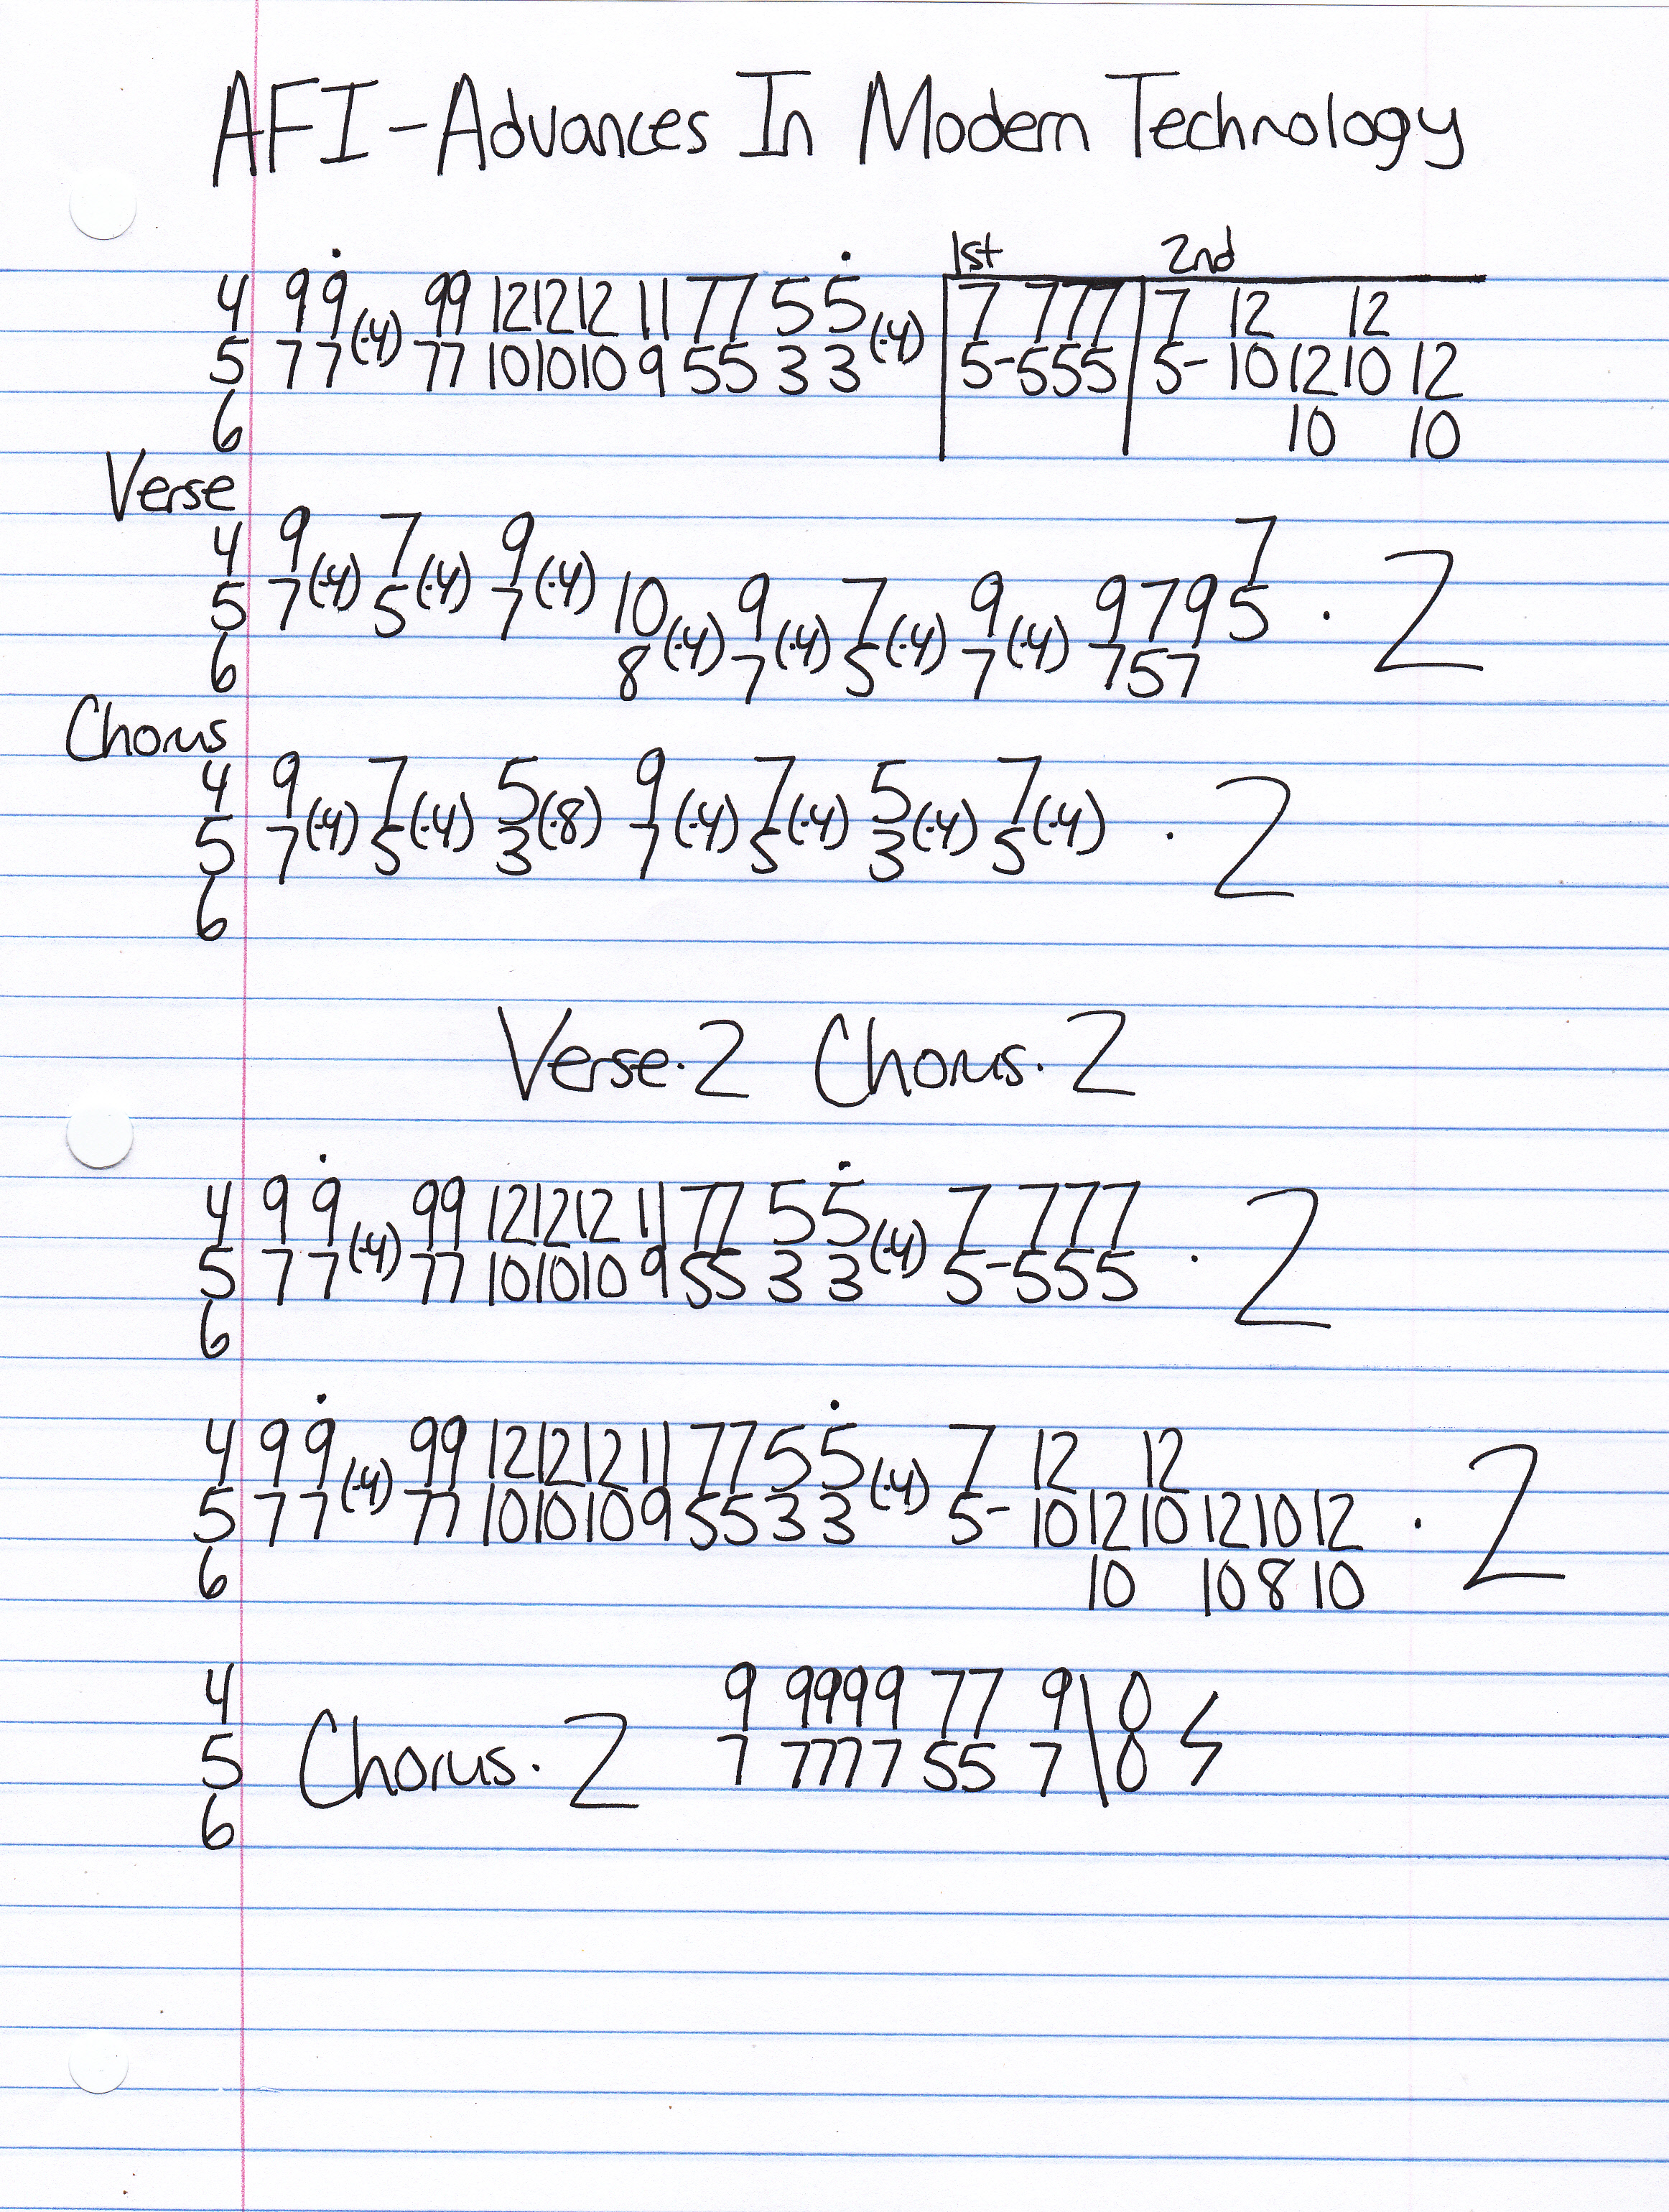 AFI-Advances In Modern Technology
1st 2nd
4 9 9̇ 99 12 12 12 11 77 5 5̇ 7 777 7 12 12
(·4) (·4)
5 7 7 77 10 10 10 9 55 3 3 5-555 5- 10 12 10 12
6 10 10
Verse
4 9 7 9 7
(·4) (·4) (·4)
5 7 5 7 10 9 7 9 9 7 9 5 · 2
(·4) (·4) (·4) (·4)
6 8 7 5 7 7 5 7
Chorus
4 9 7 5 9 7 5 7
(·4) (·4) (·8) (·4) (·4) (·4) (·4) · 2
5 7 5 3 7 5 3 5
6
Verse·2 Chorus·2
4 9 9̇ 99 12 12 12 11 77 5 5̇ 7 777
(·4) (·4) · 2
5 7 7 77 10 10 10 9 55 3 3 5-555
6
4 9 9̇ 99 12 12 12 11 77 5 5̇ 7 12 12
(·4) (·4)
5 7 7 77 10 10 10 9 55 3 3 5- 10 12 10 12 10 12 · 2
6 10 10 8 10
4 9 9999 77 9\0
5 Chorus·2 7 7777 55 7\0
6